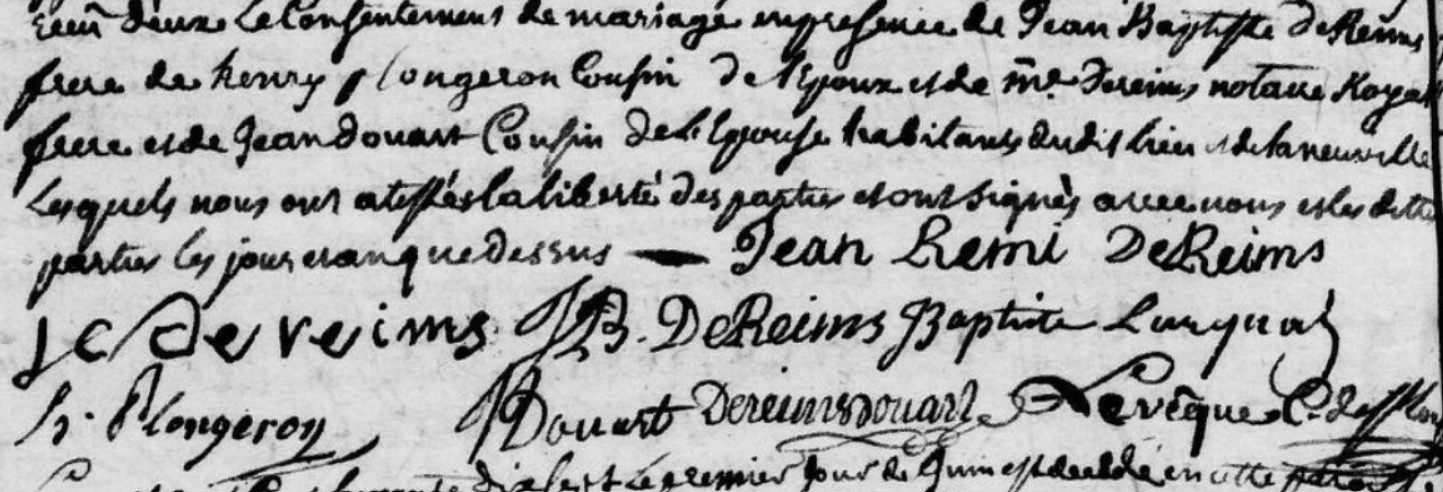 reçu d'eux le Consentement de mariage en presence de Jean Baptiste DeReims
frere de henry plongeron Cousin de l'Epoux et de me. Dereims notaire Royal
frere et de Jean Douart Cousin de l'Epouse habitants dudit lieu et de laneuville
lesquels nous ont atestés la liberté des parties et ont signés avec nous et les dittes
parties les jour et an que dessus — Jean Remi DeReims
JC De reims JB. DeReims Baptiste
h. Plongeron JDouart Dereimsdouart Levêque C. de
le premier jour de Juin est decedé en cette